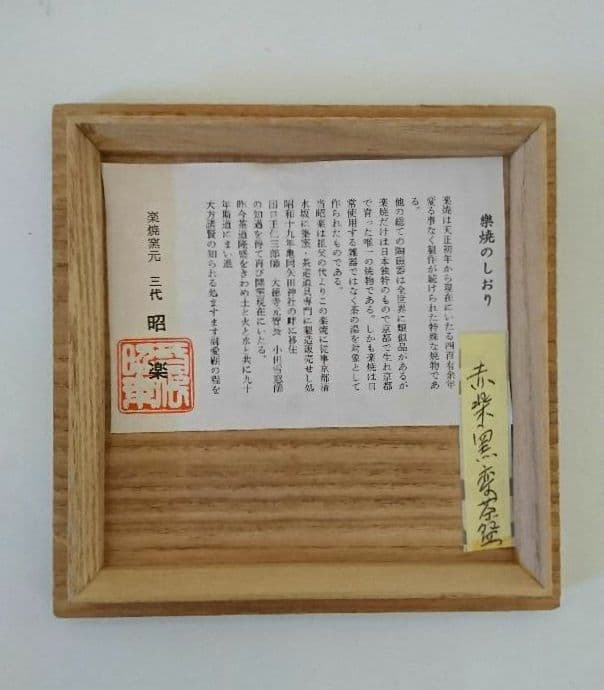 楽焼のしおり
楽焼は天正初年から現在にいたる四百有余年
変る事なく製作が続けられた特殊な焼物であ
る。
他の総ての陶磁器は全世界に類似品があるが
楽焼だけは日本独特のもので京都で生れ京都
で育った唯一の焼物である。しかも楽焼は日
常使用する雑器ではなく茶の湯を対象として
作られたものである。
当昭楽は祖父の代よりこの楽焼に従事京都清
水坂に築窯・茶道道具専門に製造販売せし処
昭和十九年亀岡矢田神社の畔に移住
出口王仁三郎師 大徳寺元管長 小田雪窓師
の知遇を得て再び開窯現在にいたる。
昨今茶道隆盛をきわめ土と火と水と共に九十
年斯道にまい進
大方諸賢の知られる処ますます御愛顧の程を
楽焼窯元 三代 昭楽
赤楽黒変茶盌